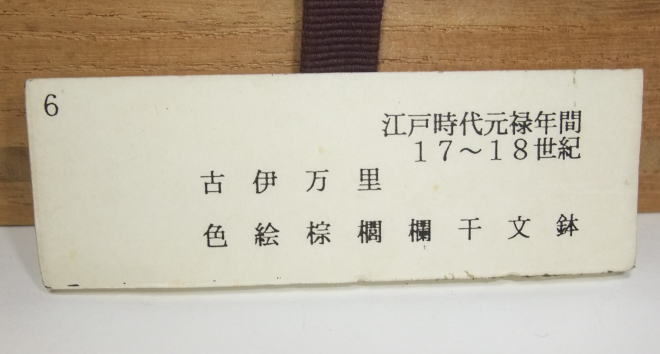 6
江戸時代元禄年間
17~18世紀
古伊万里
色絵棕櫚欄干文鉢